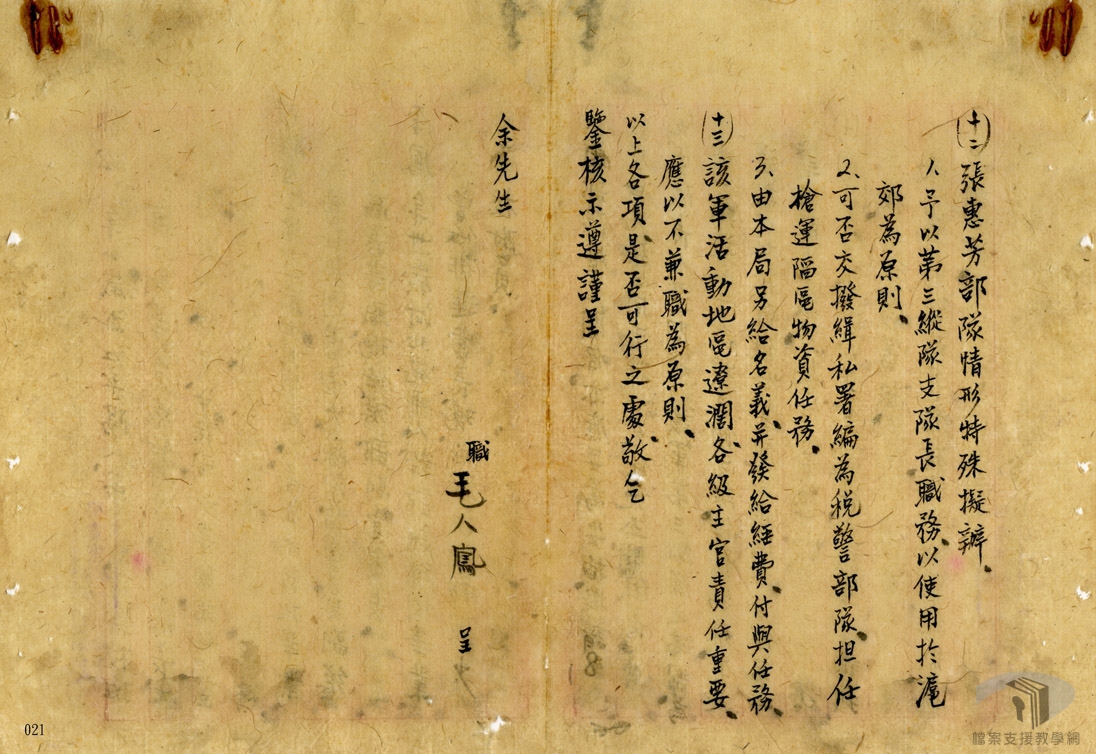 (十二)張惠芳部隊情形特殊擬辦、
1、予以第三縱隊支隊長職務、以使用於滬
郊為原則、
2、可否交撥緝私署編為稅警部隊、担任
槍運陷區物資任務、
3、由本局另給名義、并發給經費、付與任務、
(十三)該軍活動地區遼濶、各級主官責任重要、
應以不兼職為原則、
以上各項是否可行之處、敬乞
鑒核示遵謹呈
余先生
職 毛人鳳 呈
021
檔案支援教學網